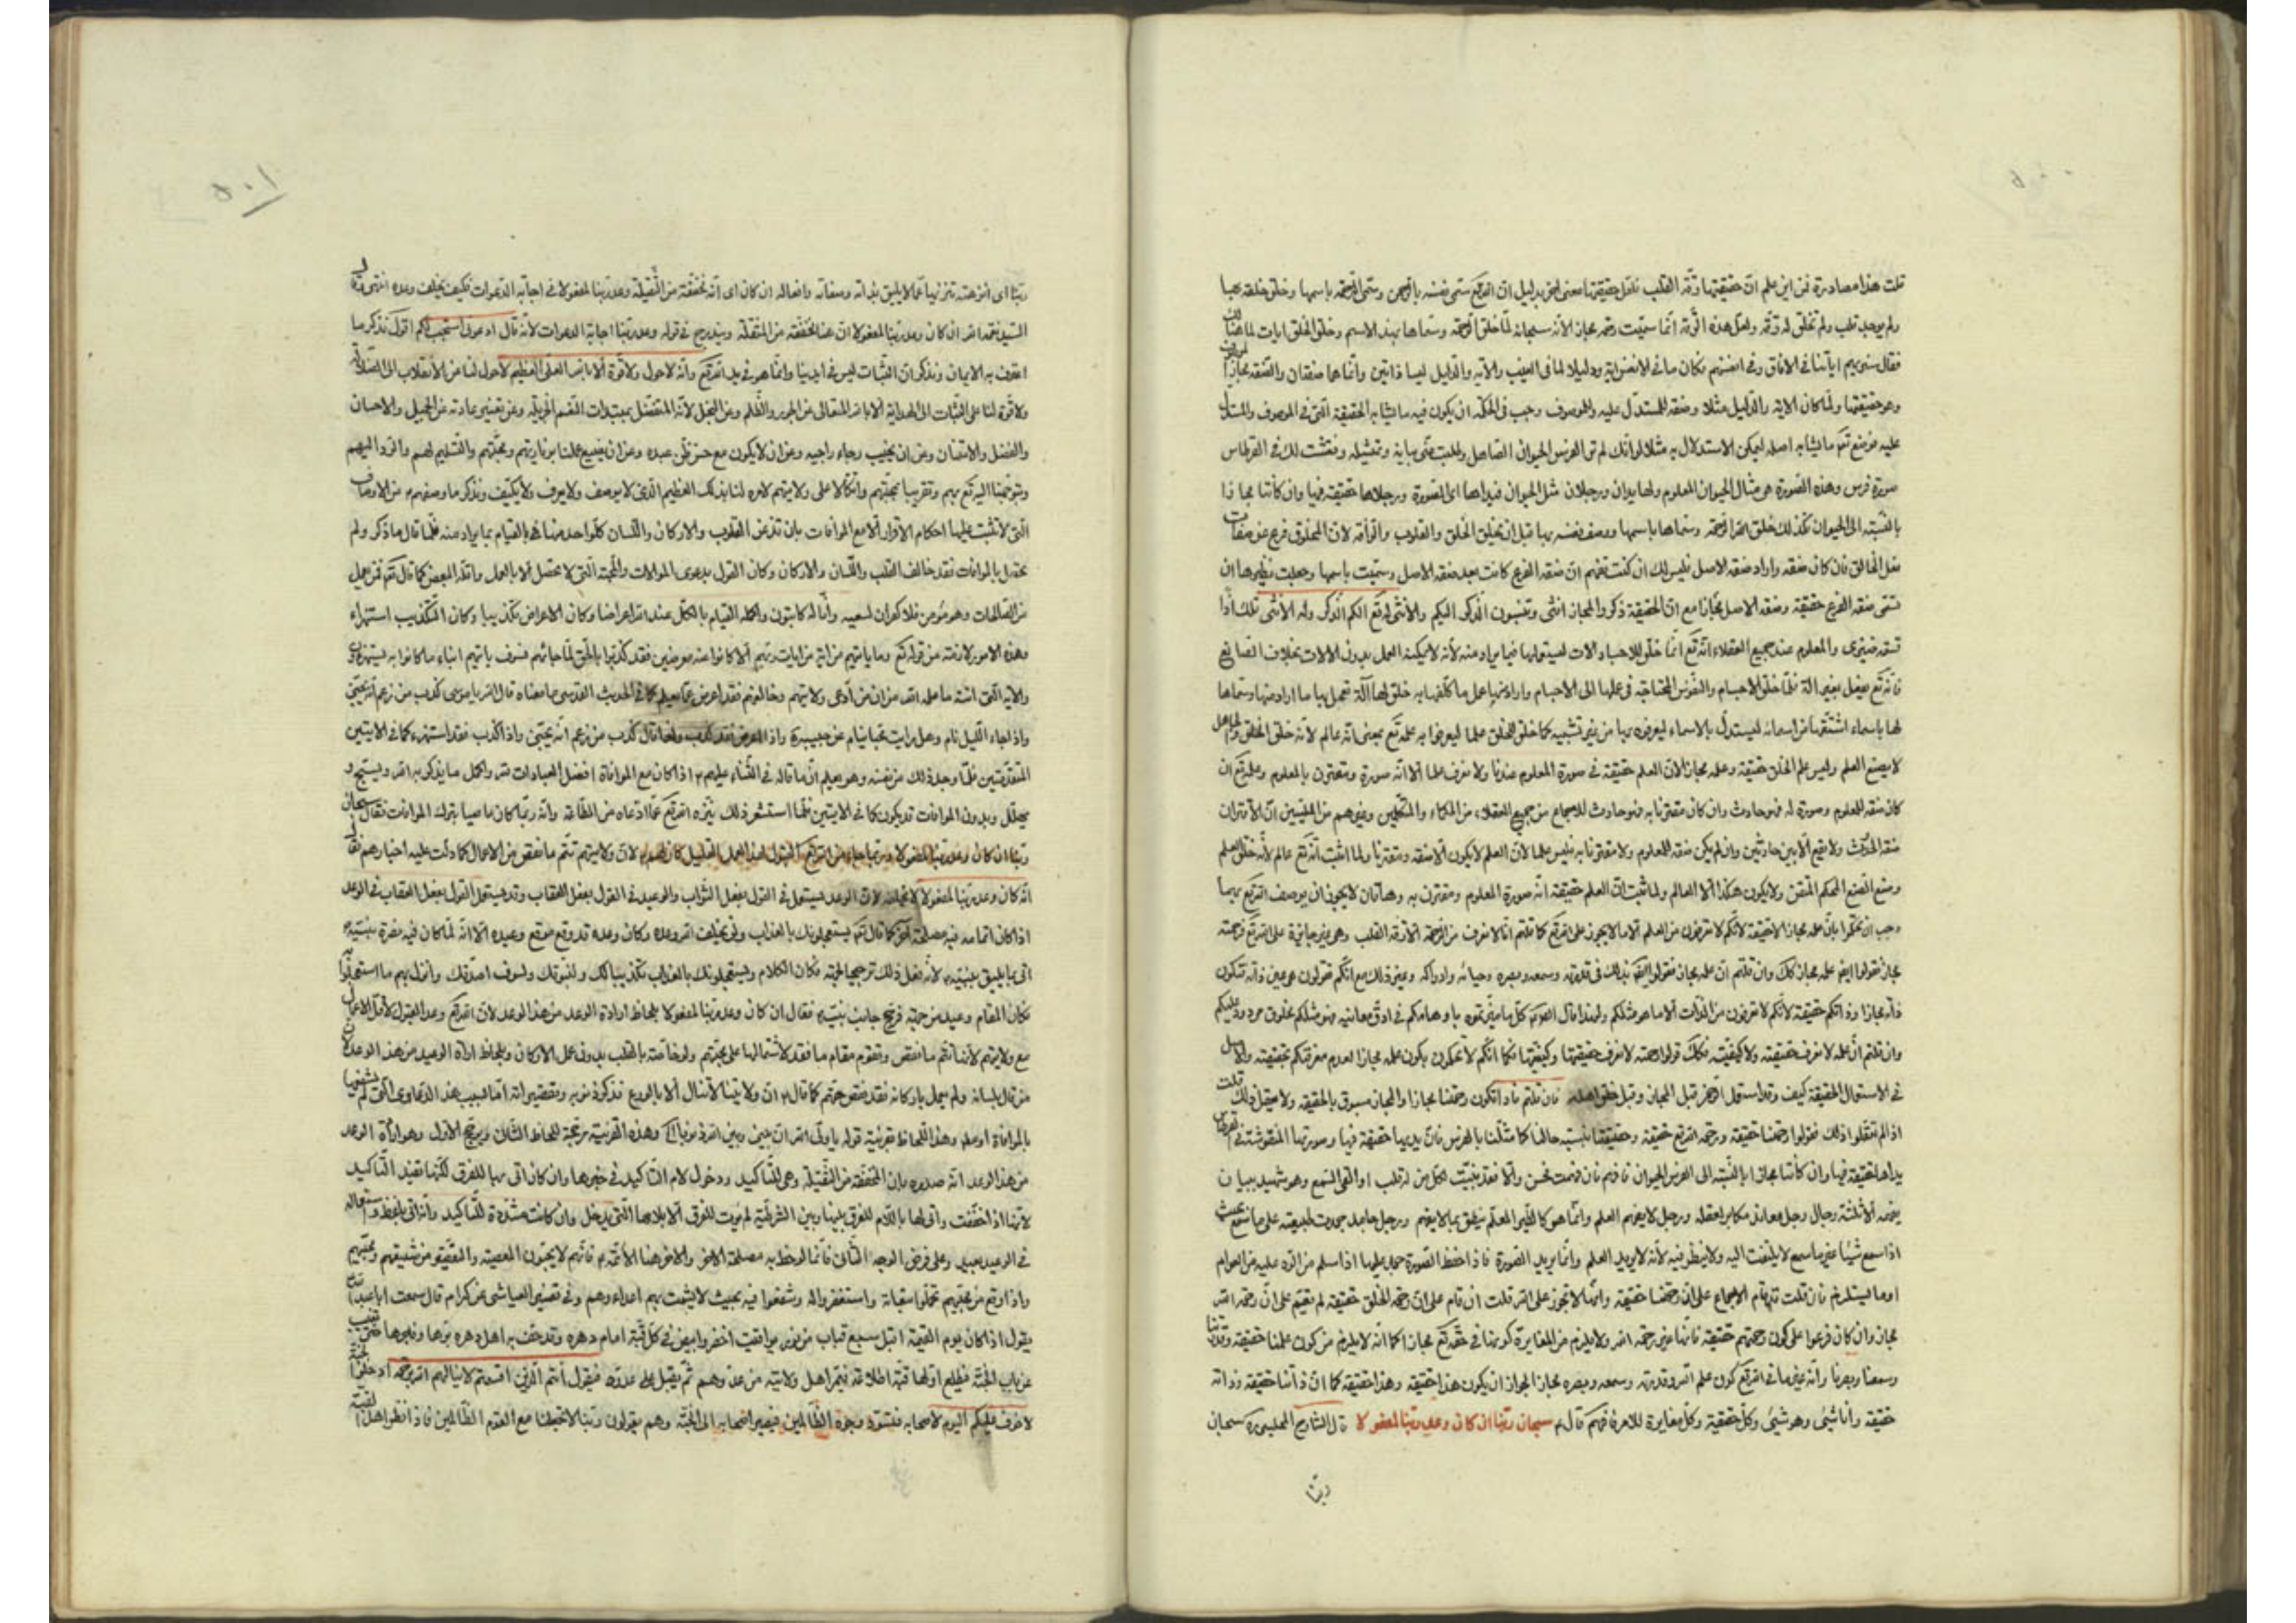 ٥٠٠
قلت هذا مصادرة فمن اين علم ان حقيقتها رقة القلب بدليل ان الله تع سمى نفسه بالرحمن وسمى الرحمة باسمها وخلق خلقه بها
ولم يوجد قلب ولم تخلق له رقة ولعل هذه الرقة انما سميت رحمة مجازا لأنه سبحانه لما خلق الرحمة وسماها بهذا الاسم وخلق الخلق ايات لما هنالك
فقال سنريهم اياتنا في الافاق وفي انفسهم فكان ما في الانفس اية ودليلا لما في الغيب والآية والدليل ليسا ذاتين وانما هما صفتان والصفة مجاز
وهو حقيقتها ولما كان الاية والدليل مثلا وصفة للمستدل عليه والموصوف وجب في الحكمة ان يكون فيه ما يشابه الحقيقة التي في الموصوف والمستدل
عليه فوضع تع ما يشابه اصله ليمكن الاستدلال به مثلا لو انك لم تر الفرس الحيوان الصاهل وطلبت مني بيانه وتمثيله ونقشت لك في القرطاس
صورة فرس وهذه الصورة هي مثال الحيوان المعلوم ولها يدان ورجلان مثل الحيوان فيداها اي الصورة ورجلاها حقيقة فيها وان كانتا مجازا
بالنسبة الى الحيوان فكذلك خلق الله الرحمة وسماها باسمها ووصف نفسه بها قبل ان يخلق الخلق والقلوب والرأفة لان المخلوق فرع عن صفات
فعل الخالق فان كان صفة واراد صفة الاصل فليس لك ان كنت تفهم ان صفة الفرع كانت بعد صفة الاصل وسميت باسمها وجعلت نظيرها ان
تسمى صفة الفرع حقيقة وصفة الاصل مجازا مع ان الحقيقة ذكر والمجاز انثى وتنسبون الذكر اليكم والانثى له تع الكم الذكر وله الانثى تلك اذا
قسمة ضيزى والمعلوم عند جميع العقلاء انه تع انما خلق للاحياء الات ليستعملها فيما يراد منه لأنه لا يمكنه العمل بدون الالات بخلاف الصانع
فانه تع يفعل بغير الة فلما خلق الاجسام والنفوس المحتاجة في عملها الى الاجسام واراد منها عمل ما كلفها به خلق لها آلة تعمل بها ما اراد منها وسماها
لها باسماء اشتقها من اسمائه ليستدل بالاسماء ليعرفوه بها من غير تشبيه كما خلق للخلق علما ليعرفوا به علمه تع بمعنى انه عالم لأنه خلق الخلق والجاهل
لا يصنع العلم وليس علم الخلق حقيقة وعلمه مجازا لان العلم حقيقة في صورة المعلوم عندنا ولا نعرف علما الا انه صورة ومقترن بالمعلوم وعلمه تع ان
كان صفة للمعلوم وصورة له فهو حادث وان كان مقترنا به فهو حادث للاجماع من جميع العقلاء من الحكماء والمتكلمين وغيرهم من المليين ان الاقتران
صفة الحدوث ولا يقع الا بين حادثين وان لم يكن صفة للمعلوم ولا مقترنا به فليس علما لان العلم لا يكون الا صفة ومقترنا ولما اثبت انه تع عالم لأنه خلق العلم
وصنع الصنع المحكم المتقن ولا يكون هكذا الا العالم ولما ثبت ان العلم حقيقة انه صورة المعلوم ومقترن به وهاتان لا يجوز ان يوصف الله تع بهما
وجب ان تحكموا بان علمه مجاز لا حقيقة لانكم لا تعرفون من العلم الا ما لا يجوز على الله تع كما قلتم انا لا نعرف من الرحمة الا رقة القلب وهي غير جائزة على الله تع فرحمته
مجاز فقولوا ايضا علمه مجاز كك وان قلتم ان علمه مجاز فقولوا ايضا كذلك في قدرته وسمعه وبصره وحياته وادراكه وغير ذلك مع انكم تقولون هي عين ذاته فتكون
ذاته مجازا وذاتكم حقيقة لانكم لا تعرفون من الذات الا ما هو مثلكم ولهذا قال الصادق كل ما ميزتموه باوهامكم في ادق معانيه فهو مثلكم مخلوق مردود اليكم
وان قلتم ان علمه لا نعرف حقيقته ولا كيفيته فكك قولوا رحمته لا نعرف حقيقتها وكيفيتها فكما انكم لا تحكمون بكون علمه مجازا لعدم معرفتكم بحقيقته والاصل
في الاستعمال الحقيقة كيف وقد استعمل الرحمن قبل المجاز وقبل خلق اهله فان قلتم فاذا تكون رحمتنا مجازا والمجاز مسبوق بالحقيقة ولا يعقل ذلك قلت
اذا لم تعقلوا ذلك فقولوا رحمتنا حقيقة ورحمة الله تع حقيقة وحقيقتنا بنسبة حالنا كما مثلنا بالفرس فان يديها حقيقة فيها وصورتها المنقوشة في القرطاس
يداها حقيقة فيها وان كانتا مجازا بالنسبة الى الفرس الحيوان فافهم فان فهمت فحسن والا فقد بينت لكل من له قلب او القى السمع وهو شهيد ببيان
يفهمه الا ثلثة رجال رجل معاند مكابر لعقله ورجل لا يفهم العلم وانما هو كالطير المعلم ينطق بما لا يفهم ورجل جامد جمدت طبيعته على ما سمع بحيث
اذا سمع شيئا غير ما سمع لا يلتفت اليه ولا ينظر فيه لأنه لا يريد العلم وانما يريد الصورة فاذا حفظ الصورة جمد عليها اذا سلم من الرد عليه من العوام
او ما يستلزم فان قلت قد قام الاجماع على ان رحمتنا حقيقة وانها لا تجوز على الله قلت ان قام على ان رحمة الخلق حقيقة لم يقم على ان رحمة الله
مجاز وان كان فرعوا على كون رحمتهم حقيقة فانها غير رحمة الله ولا يلزم من المغايرة كونها في حقه تع مجازا كما انه لا يلزم من كون علمنا حقيقة وقدرتنا
وسمعنا وبصرنا وانه غير ما في الله تع كون علم الله وقدرته وسمعه وبصره مجازا لجواز ان يكون هذا حقيقة وهذا حقيقة كما ان ذاتنا حقيقة وذاته
حقيقة وانا شيئ وهو شيئ وكل حقيقة وكل مغايرة للاخر فافهم قال ع سبحان ربنا ان كان وعد ربنا لمفعولا قال الشارح المجلسي ره سبحان
ربنا
٥٠١
ربنا اى انزهه تنزيها عما لا يليق بذاته وصفاته وافعاله ان كان اى انه مخففة من الثقيلة وعد ربنا لمفعولا في اجابة الدعوات فكيف يخلف وعده انتهى وقال
السيد نعمة الله ان كان وعد ربنا لمفعولا ان هنا مخففة من المثقلة ويندرج في قوله وعد ربنا اجابة الدعوات لأنه قال ادعوني استجب لكم اقول نذكر ما
اعترف به الايمان ونذكر ان الثبات ليس في ايدينا وانما هو في يد الله تع وأنه لا حول ولا قوة الا بالله العلي العظيم لا حول لنا من الانقلاب الى الضلالة
ولا قوة لنا على الثبات الى الهداية الا بالله المتعالي عن الجور والظلم وعن البخل لأنه المتفضل بمبتدءات النعم الجزيلة وعن تغيير عادته من الجميل والاحسان
والفضل والامتنان وعن ان يخيب رجاء راجيه وعن ان لا يكون مع حسن ظن عبده وعن ان يضيع عملنا بزيارتهم ومحبتهم والتسليم لهم والرد اليهم
وبتوجهنا اليه تع بهم وتقربنا بمحبتهم واتكالا على ولايتهم لامره لنا بذلك العظيم الذي لا يوصف ولا يعرف ولا يكيف ونذكر ما وصفهم به من الاوصاف
التي لا تثبت عليها احكام الاقوال الا مع الموافات بان تذعن القلوب والاركان واللسان كل واحد منها بالقيام بما يراد منه فلما قال ما ذكر ولم
يحتمل بالموافات فقد خالف القلب واللسان والاركان وكان القول بدعوى الموالات والمحبة التي لا تحتمل الا بالعمل واتله البعض كما قال تع فمن يعمل
من الصالحات وهو مؤمن فلا كفران لسعيه وانا له كاتبون والجملة القيام بالكل عند الله اعراضا وكان الاعراض تكذيبا وكان التكذيب استهزاء
وهذه الامور لازمة من قوله تع وما يأتيهم من اية من ايات ربهم الا كانوا عنه معرضين فقد كذبوا بالحق لما جائهم فسوف يأتيهم انباء ما كانوا به يستهزؤن
والاية التي اثبته ما علمه الله من ان من ادعى ولايتهم وخالفهم فقد اعرض عما يعلم كما في الحديث القدسي ما معناه قال الله يا موسى كذب من زعم انه يحبني
واذا جاء الليل نام وهل رايت محبا ينام عن حبيبه واذا اعرض فقد كذب ولهذا قال كذب من زعم انه يحبني واذا كذب فقد استهزء كما في الايتين
المتقدمتين فلما وجد ذلك من نفسه وهو يعلم ان ما قاله في الثناء عليهم ع اذا كان مع الموافاة افضل العبادات لله واكمل ما يذكر به الله ويسبح و
يهلل وبدون الموافات قد يكون كما في الايتين فلما استشعر ذلك نزه الله تع عما ادعاه من الطاعة وانه ربما كان عاصيا بترك الموافات فقال سبحان
ربنا ان كان وعد ربنا لمفعولا وربما جاء من الله تع القبول لهذا العمل القليل كان لهم لان ولايتهم تتم ما نقص من الاعمال كما دلت عليه اخبارهم فقال
انه كان وعد ربنا لمفعولا لا محالة لان الوعد يستعمل في القول بفعل الثواب والوعيد في القول بفعل العقاب وقد يستعمل القول بفعل العقاب في الوعد
اذا كان اتمامه فيه مصلحة كما قال تع يستعجلونك بالعذاب ولن يخلف الله وعده وكان وعده قد وقع موقع وعيده الا انه لما كان فيه نصرة نبيه
اتى بما يليق بنبيه لأنه فعل ذلك ترجيحا لجهته فكان الكلام ويستعجلونك بالعذاب تكذيبا لك ولنبوتك ولسوف اصدقك وانزل بهم ما استعجلوا
فكان المقام وعيدا من جهته فرجح جانب نبيه ع فقال ان كان وعد ربنا لمفعولا بلحاظ ارادة الوعد من هذا الوعد لان الله تع وعد القبول لاقل الاعمال
مع ولايتهم لأنها تتم ما نقص وتقوم مقام ما فقد لاشتمالها على محبتهم ولو خاصة بالقلب بدون عمل الاركان وبلحاظ ارادة الوعيد من هذا الوعد لان
من قال بلسانه ولم يعمل باركانه فقد نقص حقهم كما قال ع ان ولايتنا لا تنال الا بالورع فذكر ذنوبه وتقصيراته اما لسبب هذه الدعاوى التي لم يشفعها
بالموافاة او مطلقا وهذا اللحاظ بقرينة قوله يا ولي الله ان بيني وبين الله ذنوبا الخ وهذه القرينة مرجحة للحاظ الثاني ويرجح الاول وهو ارادة الوعد
من هذا الوعد انه صدره بان المخففة من الثقيلة وهي للتأكيد ودخول لام التأكيد في خبرها وان كان اتى بها للفرق لكنها تفيد التأكيد
لأنها اذا خففت واتى لها باللام للفرق بينها وبين الشرطية لم يؤت للفرق الا بلامها التي تدخل وان كانت مشددة للتأكيد وأنه اتى بلفظ واستعماله
في الوعيد بعيد وعلى فرض الوجه الثاني فانما لوحظ به مصلحة الاخر والاخر هنا الأئمة ع فانهم لا يحبون المعصية والتقصير من شيعتهم ومحبيهم
واذا وقع من محبيهم تحملوا سيئاته واستغفروا له وشفعوا فيه بحيث لا يشمت بهم اعداءهم وفي تفسير العياشي عن كرام قال سمعت ابا عبد الله ع
يقول اذا كان يوم القيمة اقبل سبع قباب من نور يواقيت اخضر وابيض في كل قبة امام دهره وقد حف به اهل دهره برها وفاجرها حتى تغيب
عن باب الجنة فيطلع اولها قبة اطلاعة فيميز اهل ولايته من عدوهم ثم يقبل على عدوه فيقول انتم الذين اقسمتم لا ينالهم الله برحمة ادخلوا الجنة
لا خوف عليكم اليوم لاصحابه فتسود وجوه الظالمين فيصير اصحابه الى الجنة وهم يقولون ربنا لا تجعلنا مع القوم الظالمين فاذا نظر اهل القبة